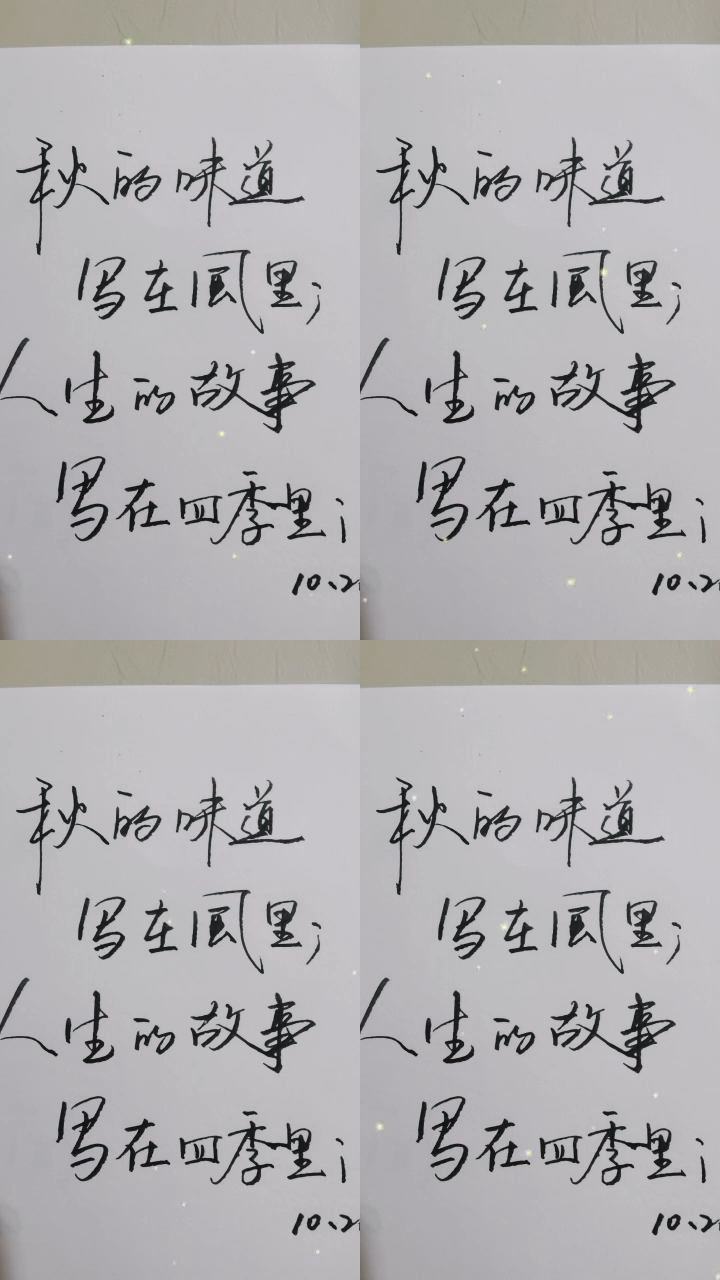 秋的味道
写在風里;
人生的故事
写在四季里;
10、2
秋的味道
写在風里;
人生的故事
写在四季里;
10、2
秋的味道
写在風里;
人生的故事
写在四季里;
10、2
秋的味道
写在風里;
人生的故事
写在四季里;
10、2